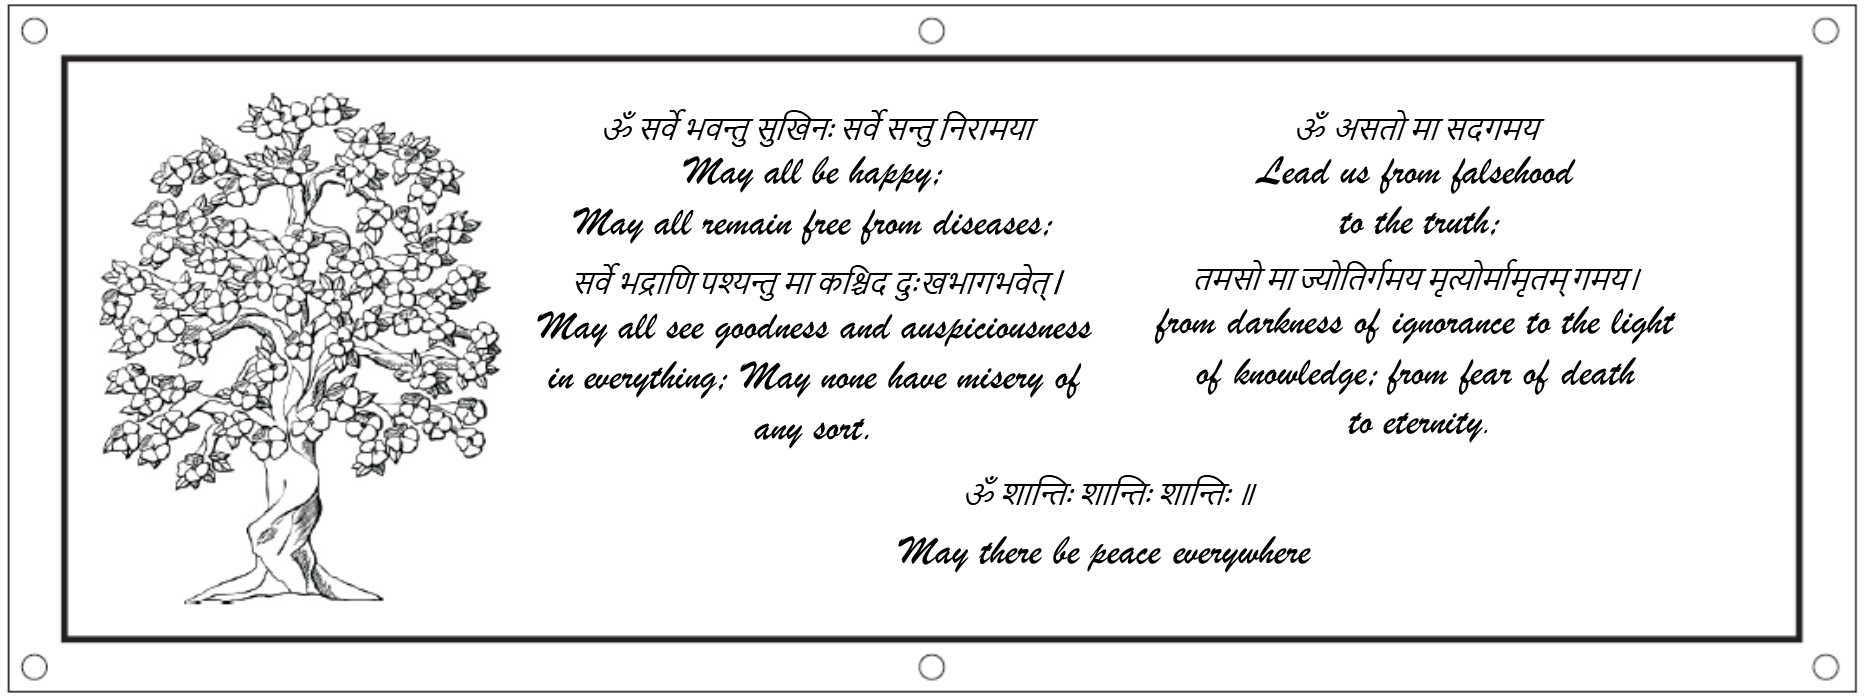 ॐ सर्वे भवन्तु सुखिनः सर्वे सन्तु निरामया
May all be happy;
May all remain free from diseases;
सर्वे भद्राणि पश्यन्तु मा कश्चिद दुःखभागभवेत्।
May all see goodness and auspiciousness
in everything; May none have misery of
any sort.
ॐ असतो मा सदगमय
Lead us from falsehood
to the truth;
तमसो मा ज्योतिर्गमय मृत्योर्मामृतम् गमय।
from darkness of ignorance to the light
of knowledge; from fear of death
to eternity.
ॐ शान्तिः शान्तिः शान्तिः ॥
May there be peace everywhere